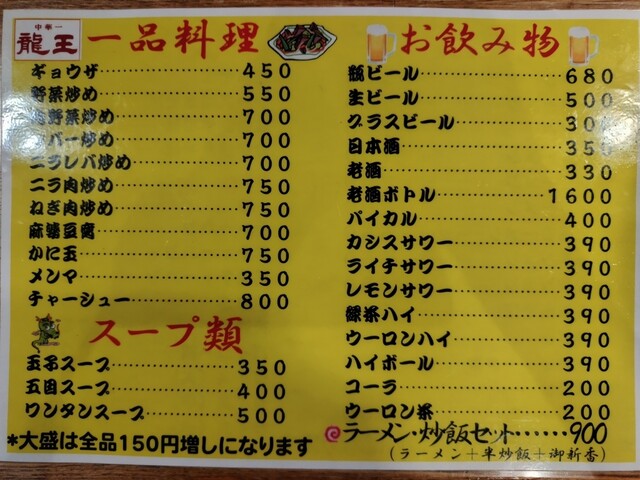 中華一
龍王
一品料理
ギョウザ 450
野菜炒め 550
野菜炒め 700
バー炒め 700
ニラレバ炒め 700
ニラ肉炒め 750
ねぎ肉炒め 750
麻婆豆腐 700
かに玉 750
メンマ 350
チャーシュー 800
スープ類
玉子スープ 350
五目スープ 400
ワンタンスープ 500
*大盛は全品150円増しになります
お飲み物
瓶ビール 680
生ビール 500
グラスビール 300
日本酒 350
老酒 330
老酒ボトル 1600
パイカル 400
カシスサワー 390
ライチサワー 390
レモンサワー 390
緑茶ハイ 390
ウーロンハイ 390
ハイボール 390
コーラ 200
ウーロン茶 200
ラーメン・炒飯セット 900
(ラーメン+半炒飯+御新香)